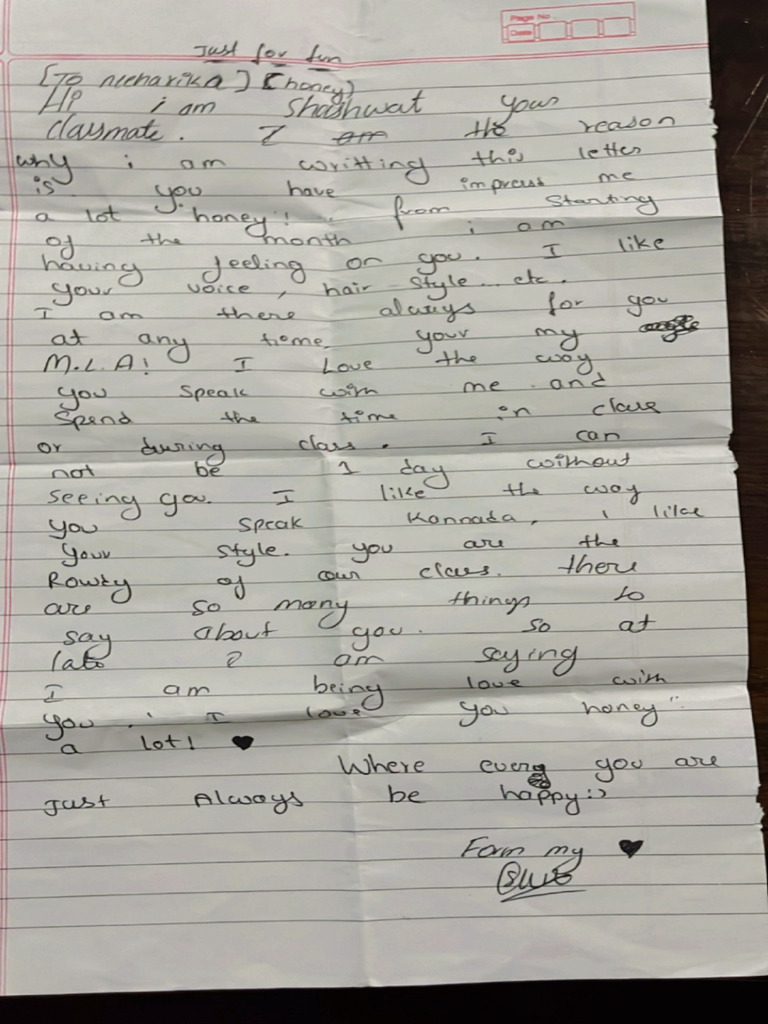 Page No
Date
Just for fun
[To neeharika] [honey)
Hi i am Shashwat your
classmate. I am the reason
why i am writting this letter
is you have impress me
a lot "honey"! from starting
of the month i am
having feeling on you. I like
your voice, hair style.. etc.
I am there always for you
at any time. your my
M.L.A! I Love the way
you speak with me and
Spend the time in class
or during class. I can
not be 1 day without
seeing you. I like the way
you speak Kannada, i like
your style. you are the
Rowdy of our class. there
are so many things to
say about you. so at
late I am saying
I am being love with
you.' I love you honey"
a lot! ♥
Where every you are
Just Always be happy:)
Form my ♥